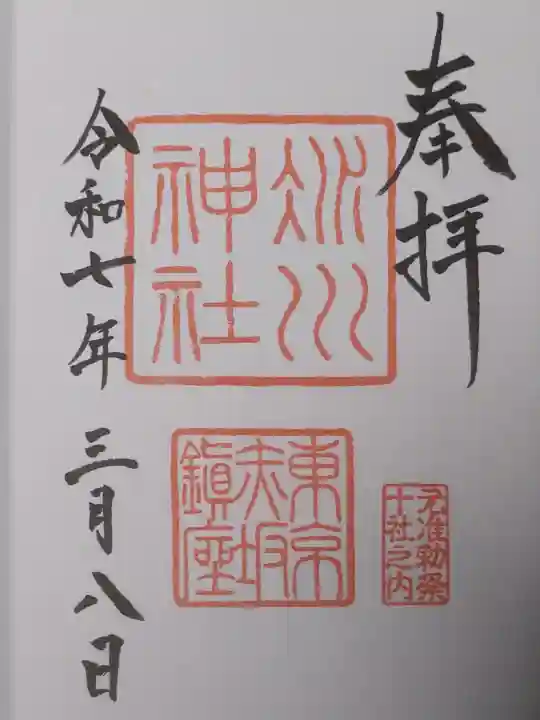 奉拝
氷川
神社
東京
赤坂
鎮座
元准勅祭
十社之内
令和七年三月八日